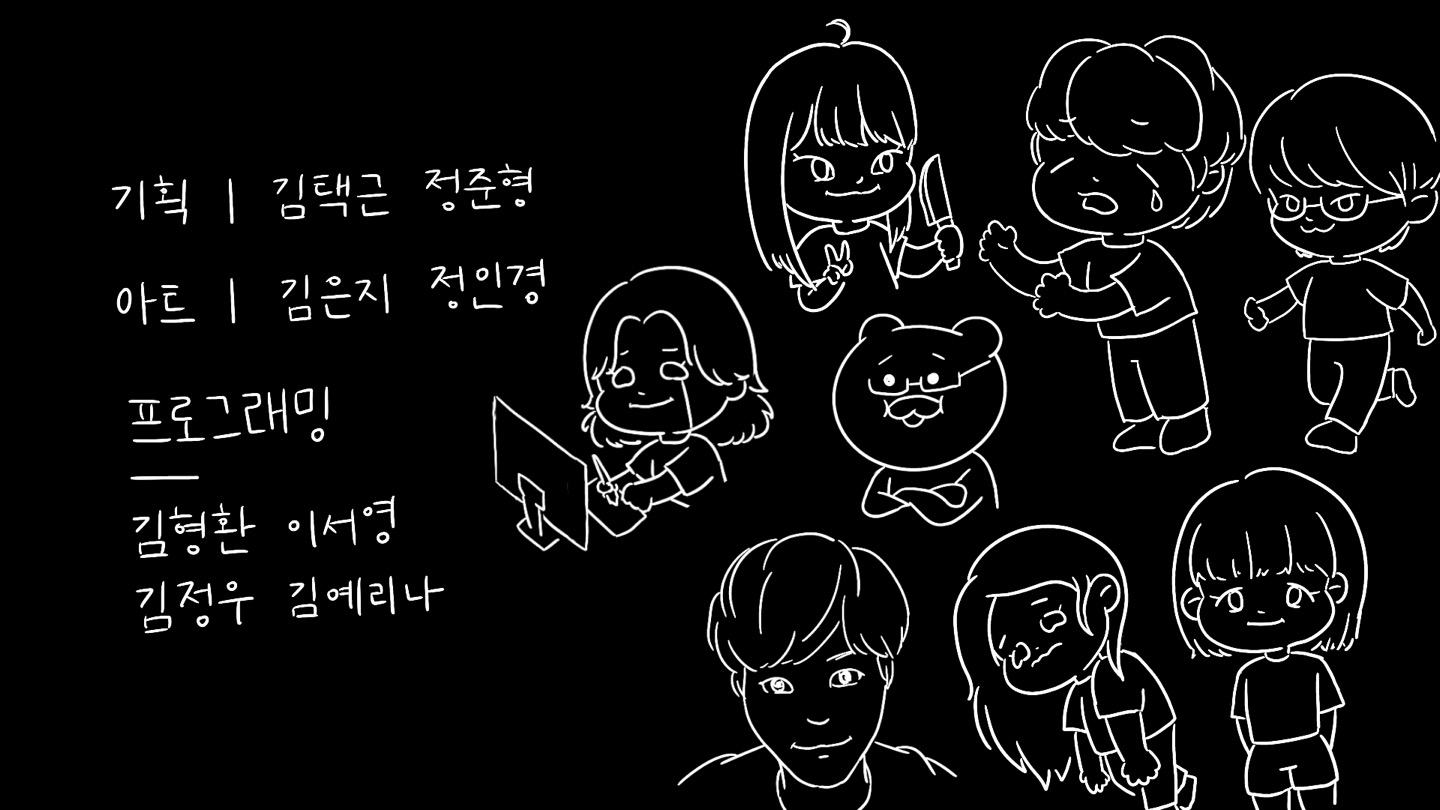 기획 | 김택근 정준형
아트 | 김은지 정인경
프로그래밍
김형환 이서영
김정우 김예리나